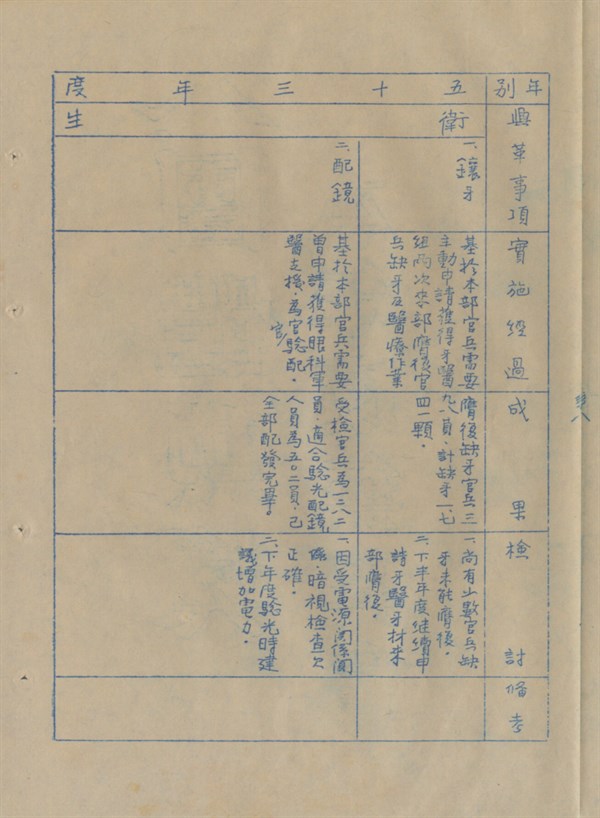 年別
五十三年度
興革事項
衛生
一、鑲牙
二、配鏡
實施經過
基於本部官兵需要
主動申請獲得牙醫
組兩次來部膺復官
兵缺牙及醫療作業
基於本部官兵需要
曾申請獲得眼科軍
醫支援，為官驗配。
成果
膺復缺牙官兵三
九八員，計缺牙一、七
四一顆。
受檢官兵為一三八二
員，適合驗光配鏡
人員為五〇二員，已
全部配發完畢。
檢討
一、尚有少數官兵缺
牙未能膺復。
二、下半年度繼續申
請牙醫牙材來
部膺復。
一、因受電源関係
係，暗視檢查欠
正確。
二、下年度驗光時建
議增加電力。
備考